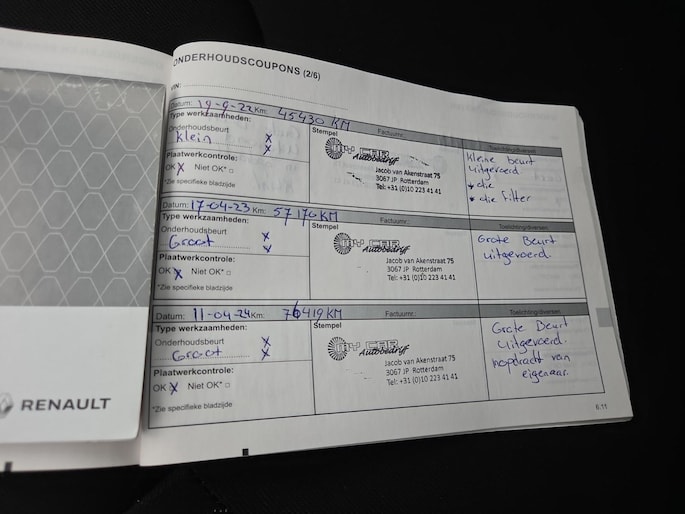 ONDERHOUDSCOUPONS (2/6)
VIN:
Datum: 19-9-22 Km: 45430 KM
Type werkzaamheden:
Onderhoudsbeurt x
klein x
Plaatwerkcontrole:
OK x Niet OK* □
*Zie specifieke bladzijde
Stempel Factuurnr.:
MY CAR
Autobedrijf
Jacob van Akenstraat 75
3067 JP Rotterdam
Tel: +31 (0)10 223 41 41
Toelichting/diversen
Kleine beurt
uitgevoerd
olie
olie filter
Datum: 17-04-23 Km: 57170 KM
Type werkzaamheden:
Onderhoudsbeurt x
Groot x
Plaatwerkcontrole:
OK x Niet OK* □
*Zie specifieke bladzijde
Stempel Factuurnr.:
MY CAR
Autobedrijf
Jacob van Akenstraat 75
3067 JP Rotterdam
Tel: +31 (0)10 223 41 41
Toelichting/diversen
Grote Beurt
uitgevoerd
Datum: 11-04-24 Km: 76419 KM
Type werkzaamheden:
Onderhoudsbeurt x
Groot x
Plaatwerkcontrole:
OK x Niet OK* □
*Zie specifieke bladzijde
Stempel Factuurnr.:
MY CAR
Autobedrijf
Jacob van Akenstraat 75
3067 JP Rotterdam
Tel: +31 (0)10 223 41 41
Toelichting/diversen
Grote Beurt
uitgevoerd.
inopdracht van
eigenaar.
6.11
RENAULT